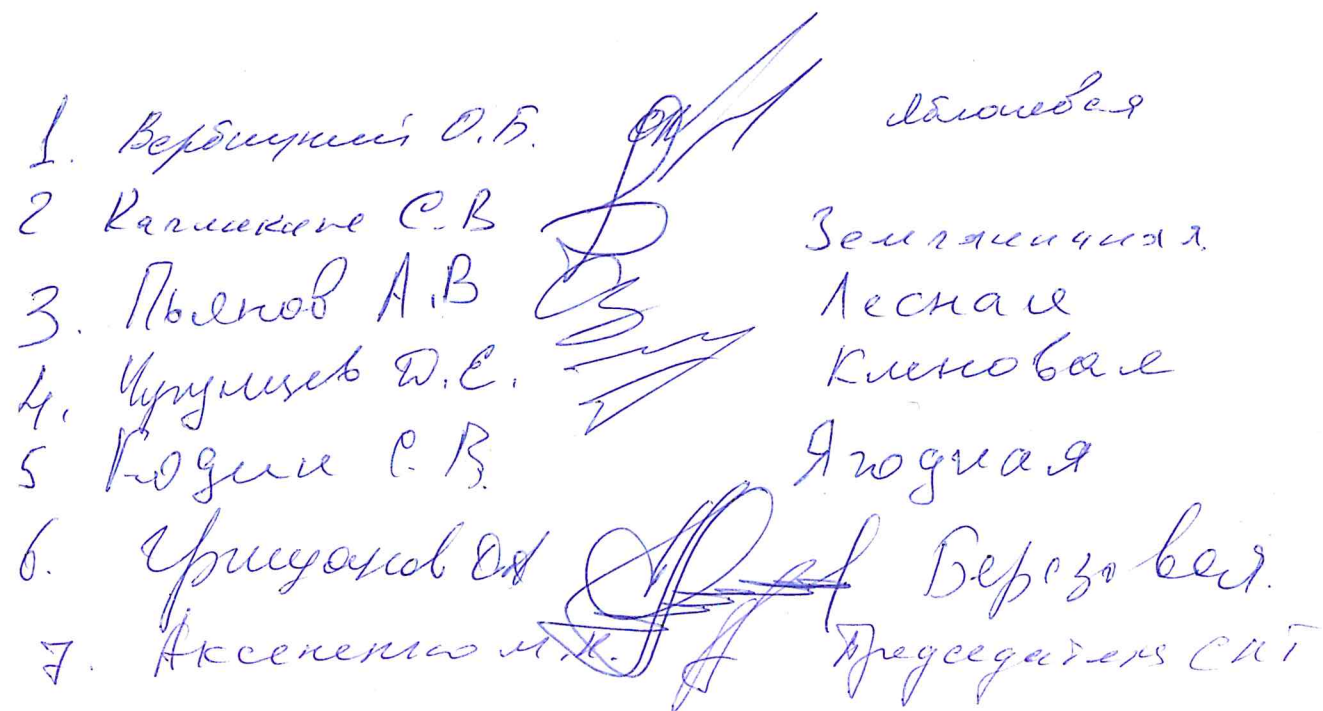 1. Вербицкий О.Б. Яблоневая
2 С.В Земляничная
3. Пьянов А.В Лесная
4. Чугунцев Д.Е. Кленовая
5 Годин С.В. Ягодная
6. Грицанов ОА Березовая.
7. Аксененко М.Н. Председатель СНТ